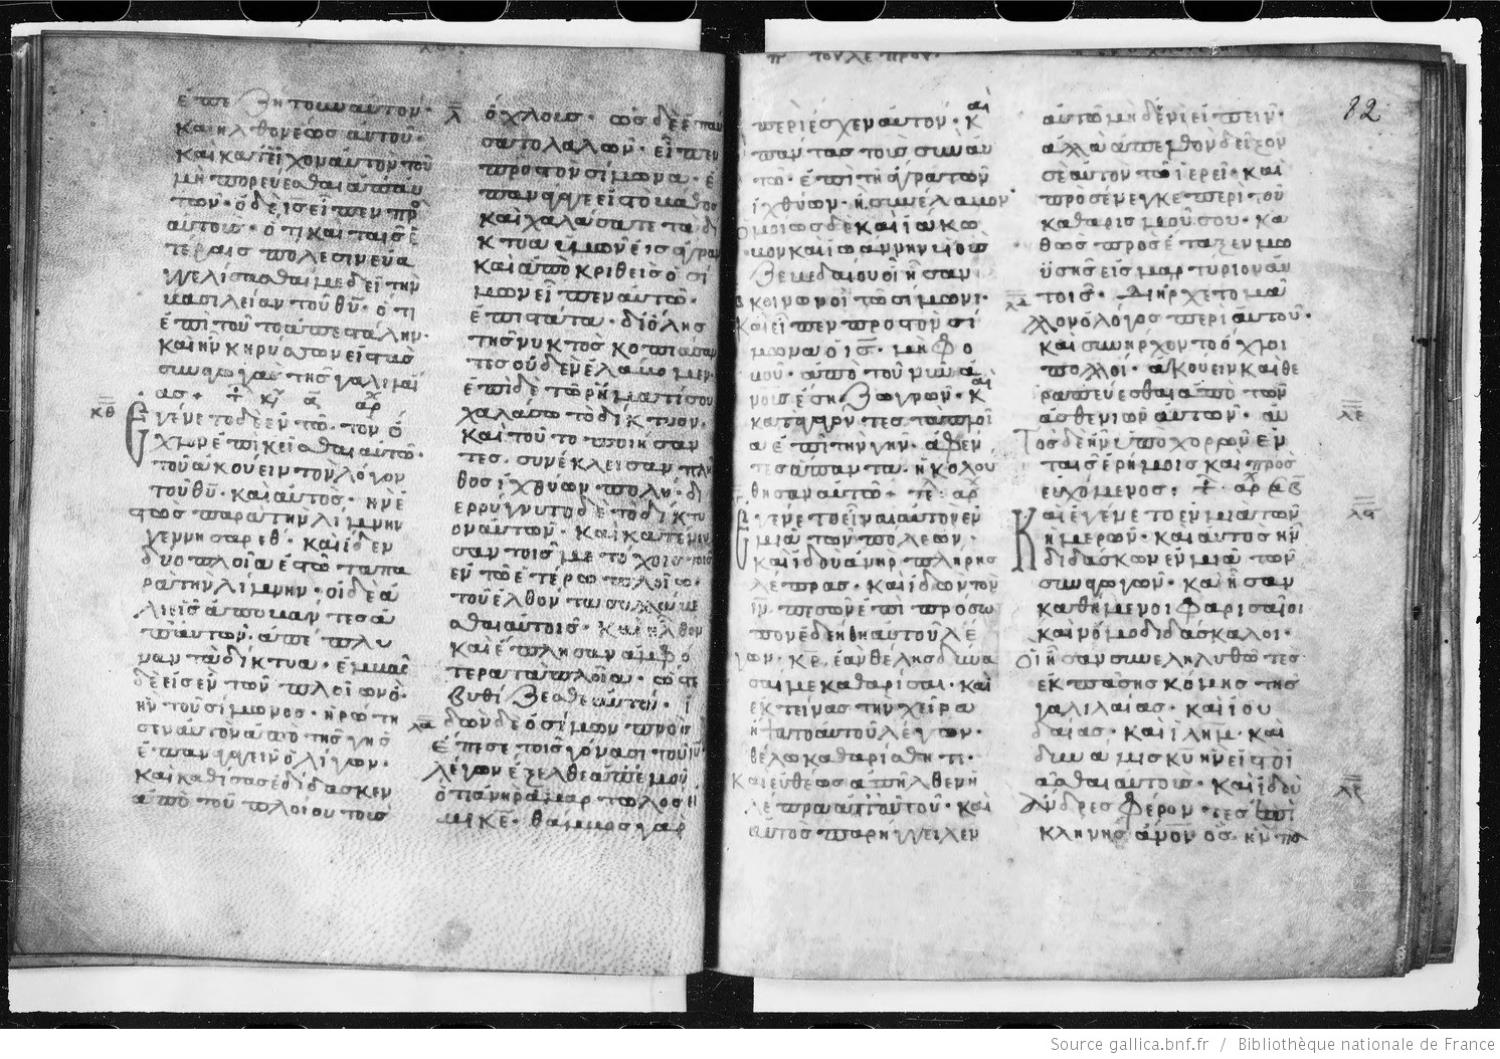 ἐπεζήτουν αὐτόν·
καὶ ἦλθον ἕως αὐτοῦ·
καὶ κατεῖχον αὐτὸν τοῦ
μὴ πορεύεσθαι ἀπ αὐ
τῶν· ὁ δὲ ισ εἶπεν πρὸ
αὐτούς· ὅτι καὶ ταῖς ἑ
τέραις πόλεσιν εὐα
γγελίσασθαί με δεῖ τὴν
βασιλείαν τοῦ θυ· ὅτι
ἐπὶ τοῦτο ἀπεστάλην·
καὶ ἦν κηρύσσων εἰς τὰς
συναγωγὰς τῆς γαλιλαί
ας +
κθ
Ἐγένετο δὲ ἐν τῶ τὸν ὄ
χλον ἐπικεῖσθαι αὐτῶ·
τοῦ ἀκούειν τὸν λόγον
τοῦ θυ· καὶ αὐτὸς ἦν ἑ
στὼς παρὰ τὴν λίμνην
γεννησαρέθ· καὶ ἰδεν
δύο πλοῖα ἑστῶτα πα
ρὰ τὴν λίμνην· οἱ δὲ ἁ
λιεῖς ἀποβάντες ἀ
π αὐτῶν· ἀπέπλυ
ναν τὰ δίκτυα· ἐμβὰς
δὲ εἰς ἓν τῶν πλοίων ὃ
ἦν τοῦ σίμωνος· ἠρώτη
σεν αὐτὸν ἀπὸ τῆς γῆς
ἐπαναγαγεῖν ὀλίγον·
καὶ καθίσας ἐδίδασκεν
ἀπὸ τοῦ πλοίου τοὺς
λ
ὄχλους· ὡς δὲ ἐπαύ
σατο λαλῶν· εἶπεν
πρὸς τὸν σίμωνα· ἐ
πανάγαγε εἰς τὸ βάθος
καὶ χαλάσατε τὰ δί
κτυα ὑμῶν εἰς ἄγραν
καὶ ἀποκριθεὶς ὁ σί
μων εἶπεν αὐτῶ·
ἐπιστάτα· δι ὅλης
τῆς νυκτὸς κοπιάσαν
τες οὐδὲν ἐλάβομεν·
ἐπὶ δὲ τῶ ρήματί σου
χαλάσω τὸ δίκτυον·
καὶ τοῦτο ποιήσαν
τες· συνέκλεισαν πλῆ
θος ἰχθύων πολύ· δι
ερρήγνυτο δὲ τὸ δίκτυ
ον αὐτῶν· καὶ κατένευ
σαν τοῖς μετόχοις τοῖς
ἐν τῶ ἑτέρω πλοίω·
τοῦ ἐλθόντας συλλαβέ
σθαι αὐτοῖς· καὶ ἦλθον
καὶ ἔπλησαν ἀμφό
τερα τὰ πλοῖα· ὥστε
βυθίζεσθαι αὐτά· ἰ
λα
δὼν δὲ ὁ σίμων πέτρος
ἔπεσε τοῖς γόνασι τοῦ ιυ
λέγων ἔξελθε ἀπ ἐμοῦ
ὅτι ἀνὴρ ἁμαρτωλός εἰ
μι κε· θάμβος γὰρ
82
περιέσχεν αὐτόν· καὶ
πάντας τοὺς σὺν αὐ
τῶ· ἐπὶ τῆ ἄγρα τῶν
ἰχθύων· ἧ συνέλαβον·
ὁμοίως δὲ καὶ ἰάκω
βον καὶ ἰωάννην υἱοὺς
ζεβεδαίου οἳ ἦσαν
κοινωνοὶ τῶ σίμωνι·
καὶ εἶπεν πρὸς τὸν σί
μωνα ὁ ισ· μὴ φο
βοῦ· ἀπὸ τοῦ νῦν ἀ
νους ἔση ζωγρῶν· καὶ
καταγαγόντες τὰ πλοῖ
α ἐπὶ τὴν γῆν· ἀφέν
τες ἅπαντα· ἠκολού
θησαν αὐτῶ +
Ἐγένετο εἶναι αὐτὸν ἐν
μιᾶ τῶν πόλεων·
καὶ ἰδοὺ ἀνὴρ πλήρης
λέπρας· καὶ ἰδὼν τὸν
ιν· πεσὼν ἐπὶ πρόσω
πον ἐδεήθη αὐτοῦ λέ
γων· κε ἐὰν θέλης δύνα
σαί με καθαρίσαι· καὶ
ἐκτείνας τὴν χεῖρα
ἥψατο αὐτοῦ λέγων·
θέλω καθαρίσθητι·
καὶ εὐθέως ἀπῆλθεν ἡ
λέπρα ἀπ αὐτοῦ· καὶ
αὐτὸς παρήγγειλεν
αὐτῶ μηδενὶ εἰπεῖν·
ἀλλὰ ἀπελθὼν δεῖξον
σεαυτὸν τῶ ἱερεῖ· καὶ
προσένεγκε περὶ τοῦ
καθαρισμοῦ σου· κα
θὼς προσέταξεν μω
ϋσῆς εἰς μαρτύριον αὐ
τοῖς· Διήρχετο μᾶ
λλον ὁ λόγος περὶ αὐτοῦ·
καὶ συνήρχοντο ὄχλοι
πολλοὶ· ἀκούειν καὶ θε
ραπεύεσθαι ἀπὸ τῶν
ἀσθενιῶν αὐτῶν· αὐ
λε
τὸς δὲ ἦν ὑποχωρῶν ἐν
ταῖς ἐρήμοις καὶ προσ
ευχόμενος·
λς
Καὶ ἐγένετο ἐν μιᾶ τῶν
ἡμερῶν· καὶ αὐτὸς ἦν
διδάσκων ἐν μιᾶ τῶν
συναγωγῶν· καὶ ἦσαν
καθήμενοι φαρισαῖοι
καὶ νομοδιδάσκαλοι·
οἳ ἦσαν συνεληλυθότες
ἐκ πάσης κώμης τῆς
γαλιλαίας· καὶ ἰου
δαίας· καὶ ιλημ· καὶ
δύναμις κυ ἦν εἰς τὸ ἰ
ᾶσθαι αὐτούς· καὶ ἰδοὺ
ἄνδρες φέροντες ἐπὶ
κλήνης ἀνον ὃς ἦν πα